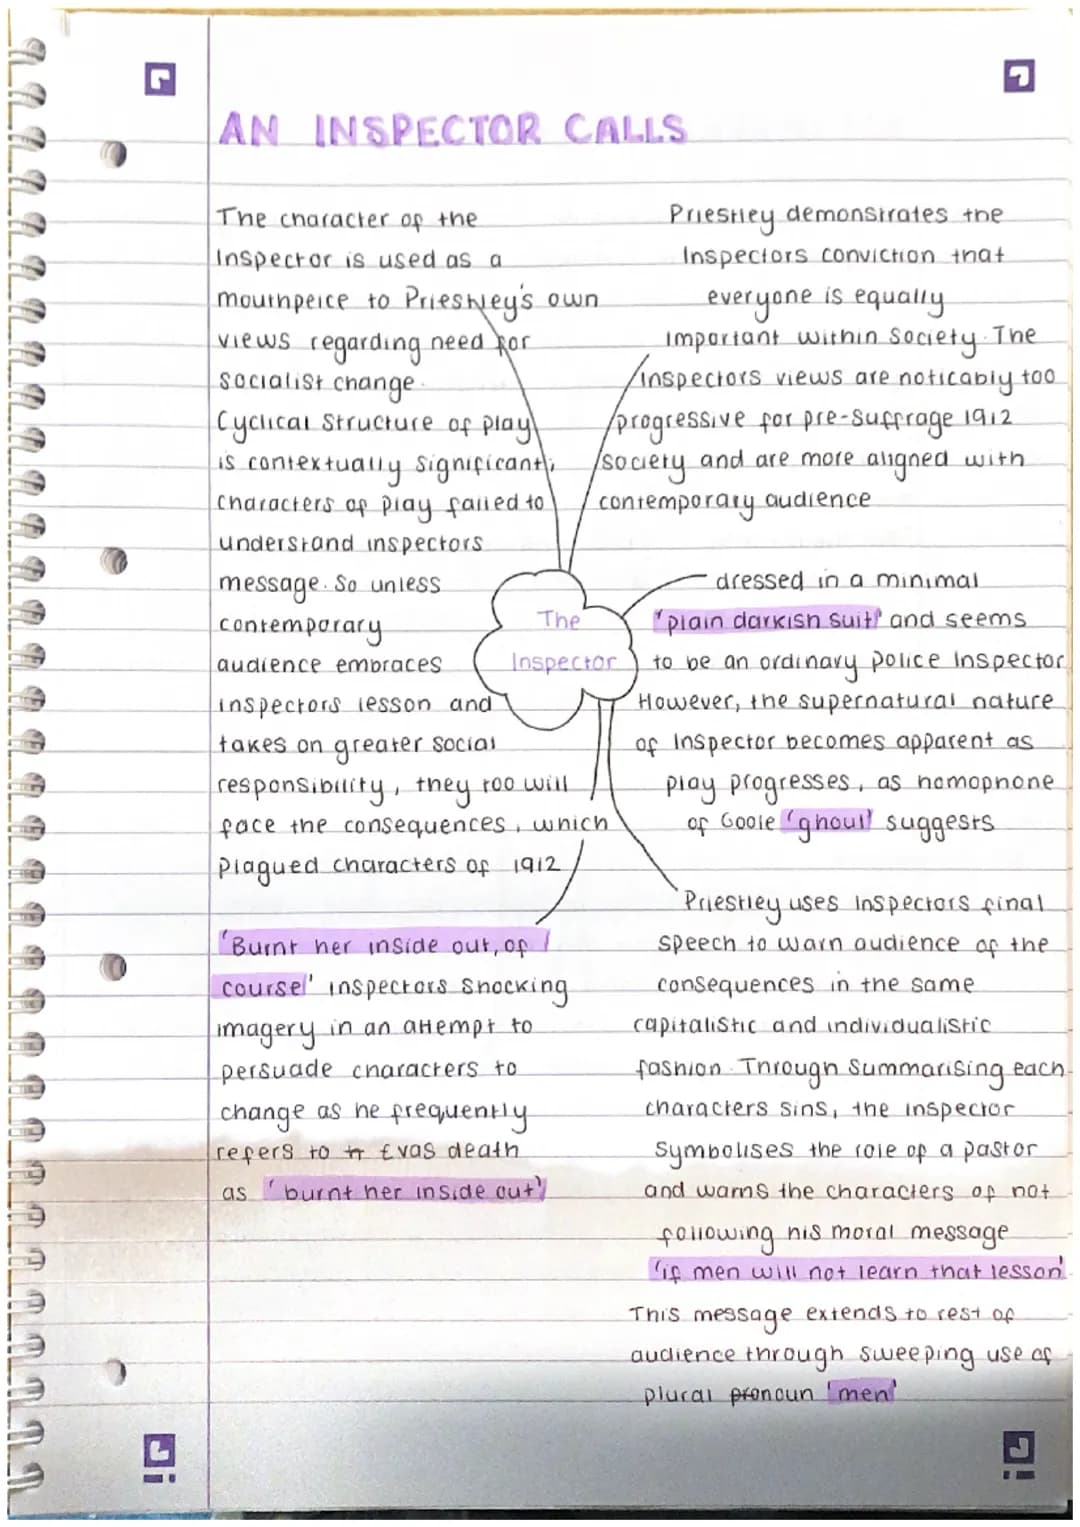 AN INSPECTOR CALLS
The character of the
Inspector is used as a
mouthpeice to Priestley's own
views regarding need for
socialist change.
Cyclical Structure of play
is contextually significant;
characters of play failed to
understand inspectors
message. So unless
contemporary
audience embraces
inspectors lesson and
takes on greater social
responsibility, they too will
face the consequences, which
plagued characters of 1912
'Burnt her inside out, of
course' inspectors shocking
imagery in an attempt to
persuade characters to
change as he frequently
refers to Evas death
as 'burnt her inside out'
The
Inspector
Priestley demonstrates the
Inspectors conviction that
everyone is equally
important within society. The
inspectors views are noticably too
progressive for pre-suffrage 1912
society and are more aligned with
contemporary audience
dressed in a minimal
'plain darkish suit' and seems
to be an ordinary police inspector
However, the supernatural nature
of Inspector becomes apparent as
play progresses, as homophone
of Goole 'ghoul' suggests
Priestley uses inspectors final
speech to warn audience of the
consequences in the same
capitalistic and individualistic
fashion. Through summarising each
characters sins, the inspector
symbolises the role of a pastor
and warns the characters of not
following his moral message
'if men will not learn that lesson'
This message extends to rest of
audience through sweeping use of
plural pronoun 'men'